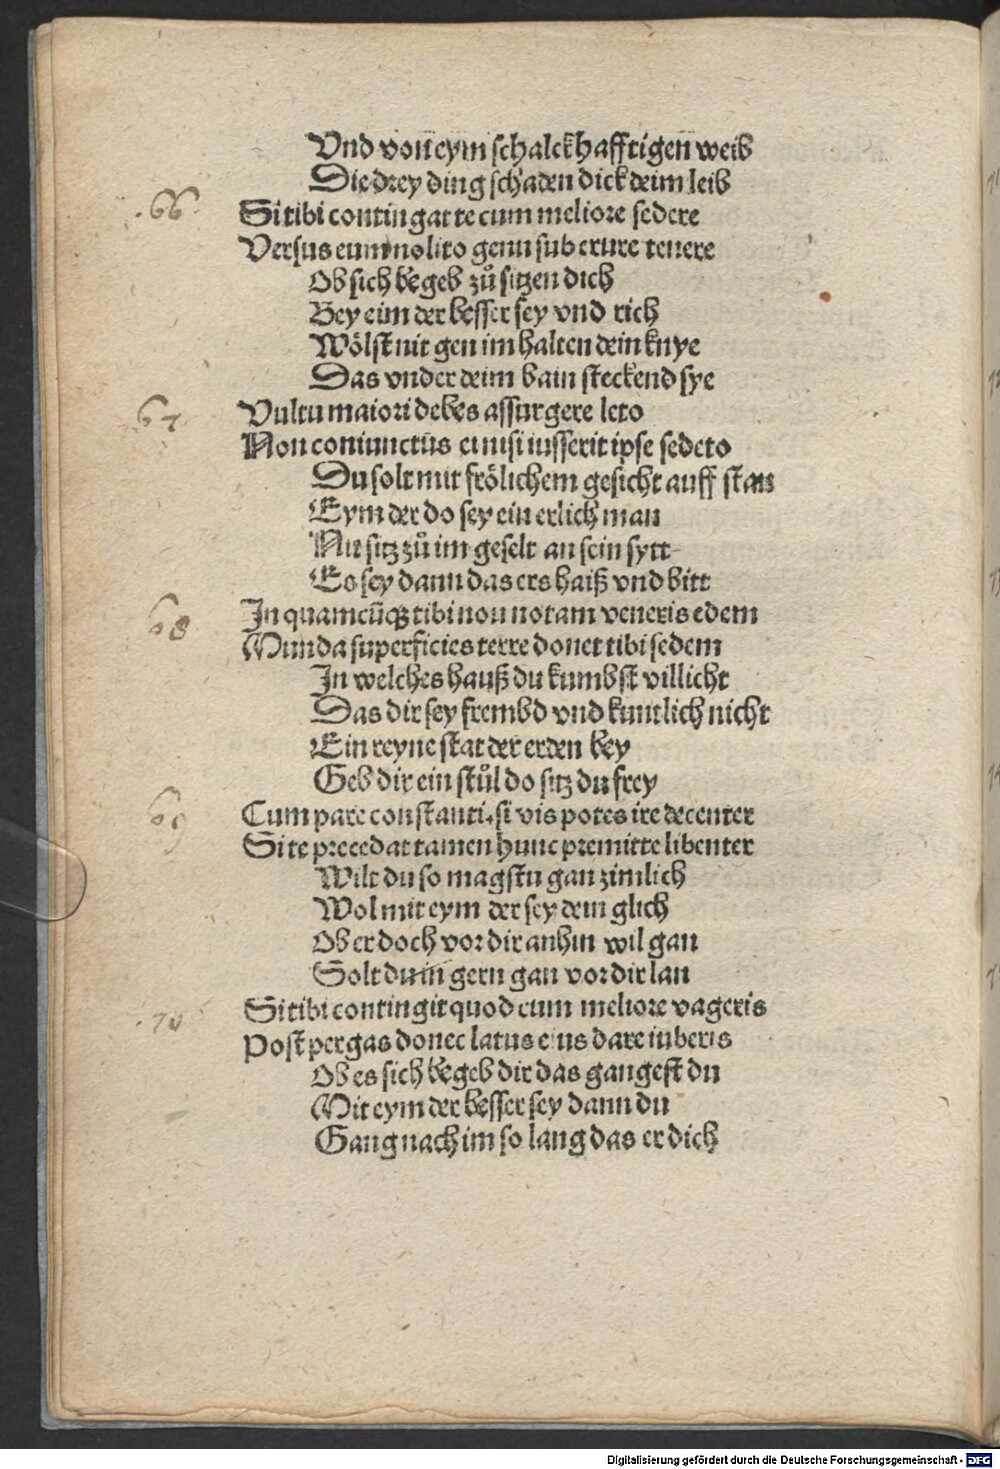 Vnd von eym schalckhafftigen weib
Die drey ding schaden dick deim leib
.66. Si tibi contingat te cum meliore sedere
Versus eum nolito genu sub crure tenere
Ob sich begeb zů sitzen dich
Bey eim der besser sey vnd rich
Wölst nit gen im halten dein knye
Das vnder deim bain steckend sye
67 Vultu maiori debes assurgere leto
Non coniunctus ei nisi iusserit ipse sedeto
Du solt mit frölichem gesicht auff stan
Eym der do sey ein erlich man
Nit sitz zů im geselt an sein sytt
Es sey dann das ers haiß vnd bitt
68 In quamcūqꝫ tibi non notam veneris edem
Munda superficies terre donet tibi sedem
In welches hauß du kumbst villicht
Das dir sey frembd vnd kuntlich nicht
Ein reyne stat der erden bey
Geb dir ein stůl do sitz du frey
69 Cum pare constanti.si vis potes ire decenter
Si te precedat tamen hunc premitte libenter
Wilt du so magstu gan zimlich
Wol mit eym der sey dein glich
Ob er doch vor dir anhin wil gan
Solt du in gern gan vor dir lan
.70 Si tibi contingit quod cum meliore vageris
Post pergas donec latus eius dare iuberis
Ob es sich begeb dir das gangest du
Mit eym der besser sey dann du
Gang nach im so lang das er dich
Digitalisierung gefördert durch die Deutsche Forschungsgemeinschaft - DFG